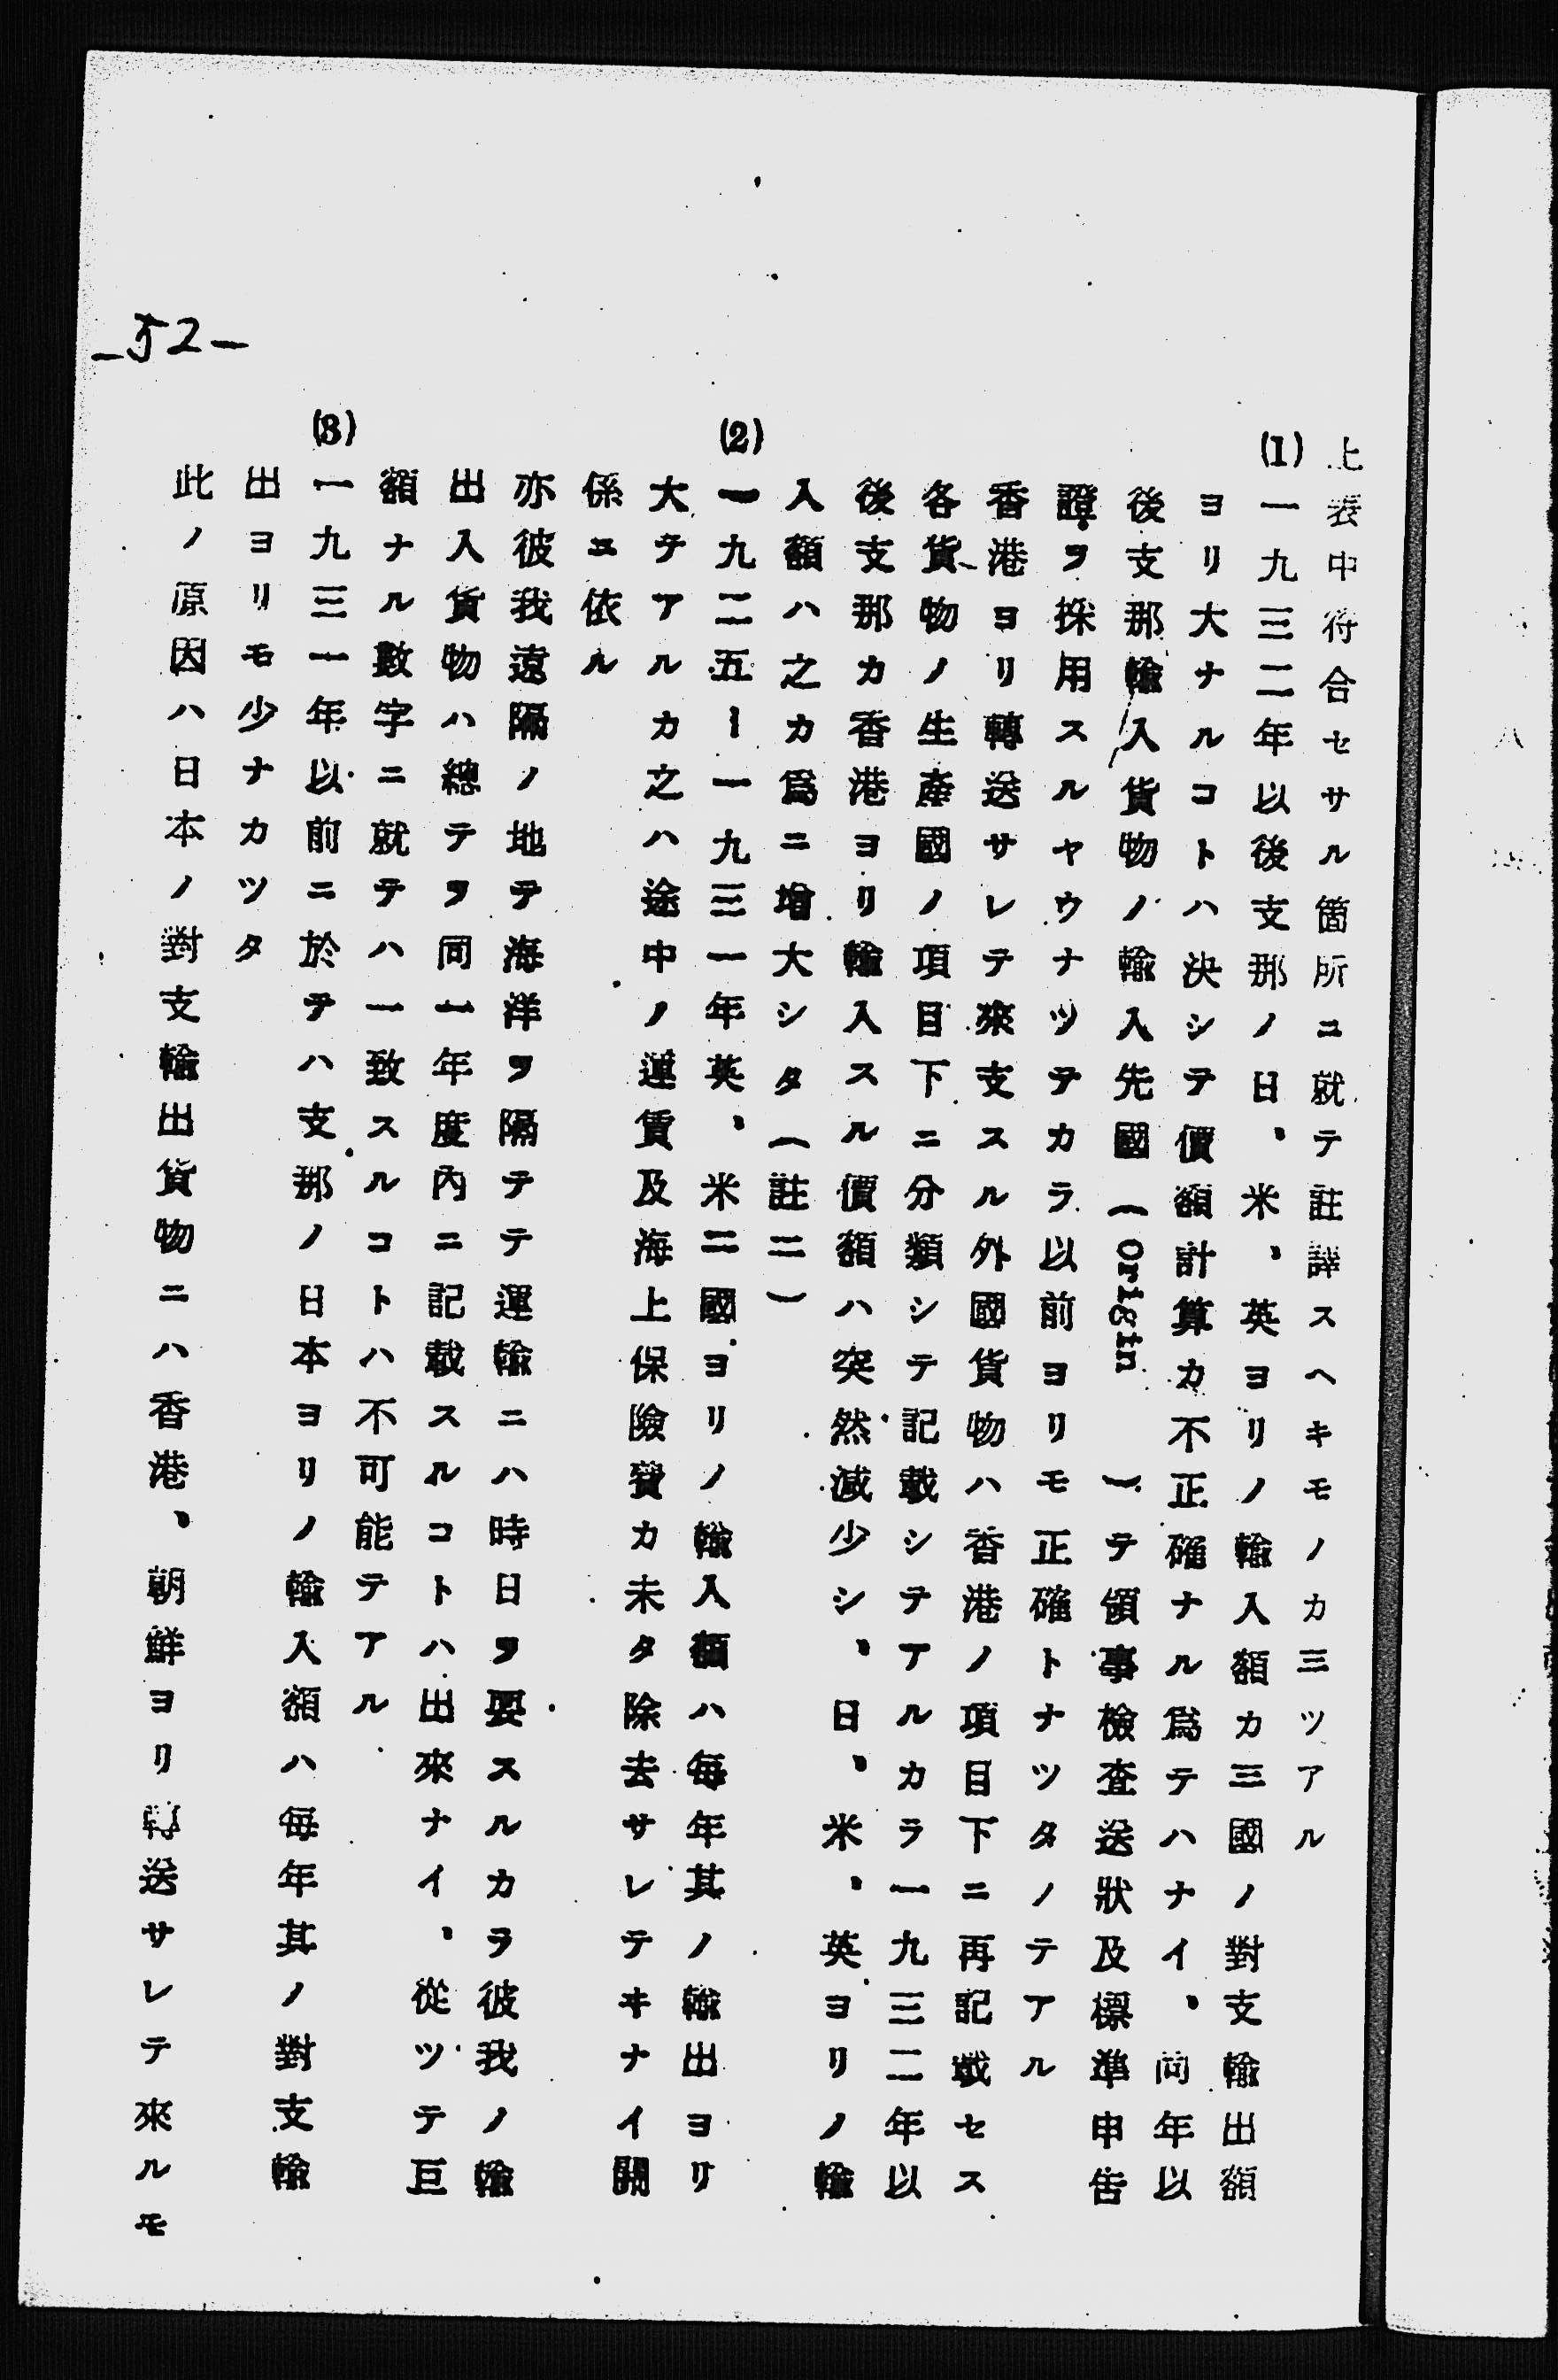 上表中符合セサル箇所ニ就テ註譯スヘキモノカ三ツアル
(1)一九三二年以後支那ノ日、米、英ヨリノ輸入額カ三國ノ對支輸出額
ヨリ大ナルコトハ決シテ價額計算カ不正確ナル爲テハナイ、同年以
後支那輸入貨物ノ輸入先國(Origin)テ領事檢査送狀及標準申告
證ヲ採用スルヤウナツテカラ以前ヨリモ正確トナツタノテアル
香港ヨリ轉送サレテ來支スル外國貨物ハ香港ノ項目下ニ再記載セス
各貨物ノ生產國ノ項目下ニ分類シテ記載シテアルカラ一九三二年以
後支那カ香港ヨリ輸入スル價額ハ突然減少シ、日、米、英ヨリノ輸
入額ハ之カ爲ニ增大シタ(註二)
(2)一九二五ー一九三一年英、米二國ヨリノ輸入額ハ每年其ノ輸出ヨリ
大テアルカ之ハ途中ノ運賃及海上保險費カ未タ除去サレテヰナイ關
係ニ依ル
亦彼我遠隔ノ地テ海洋ヲ隔テテ運輸ニハ時日ヲ要スルカラ彼我ノ輸
出入貨物ハ總テヲ同一年度內ニ記載スルコトハ出來ナイ、從ツテ巨
額ナル數字ニ就テハ一致スルコトハ不可能テアル
(3)一九三一年以前ニ於テハ支那ノ日本ヨリノ輸入額ハ每年其ノ對支輸
出ヨリモ少ナカツタ
此ノ原因ハ日本ノ對支輸出貨物ニハ香港、朝鮮ヨリ轉送サレテ來ルモ
—52—